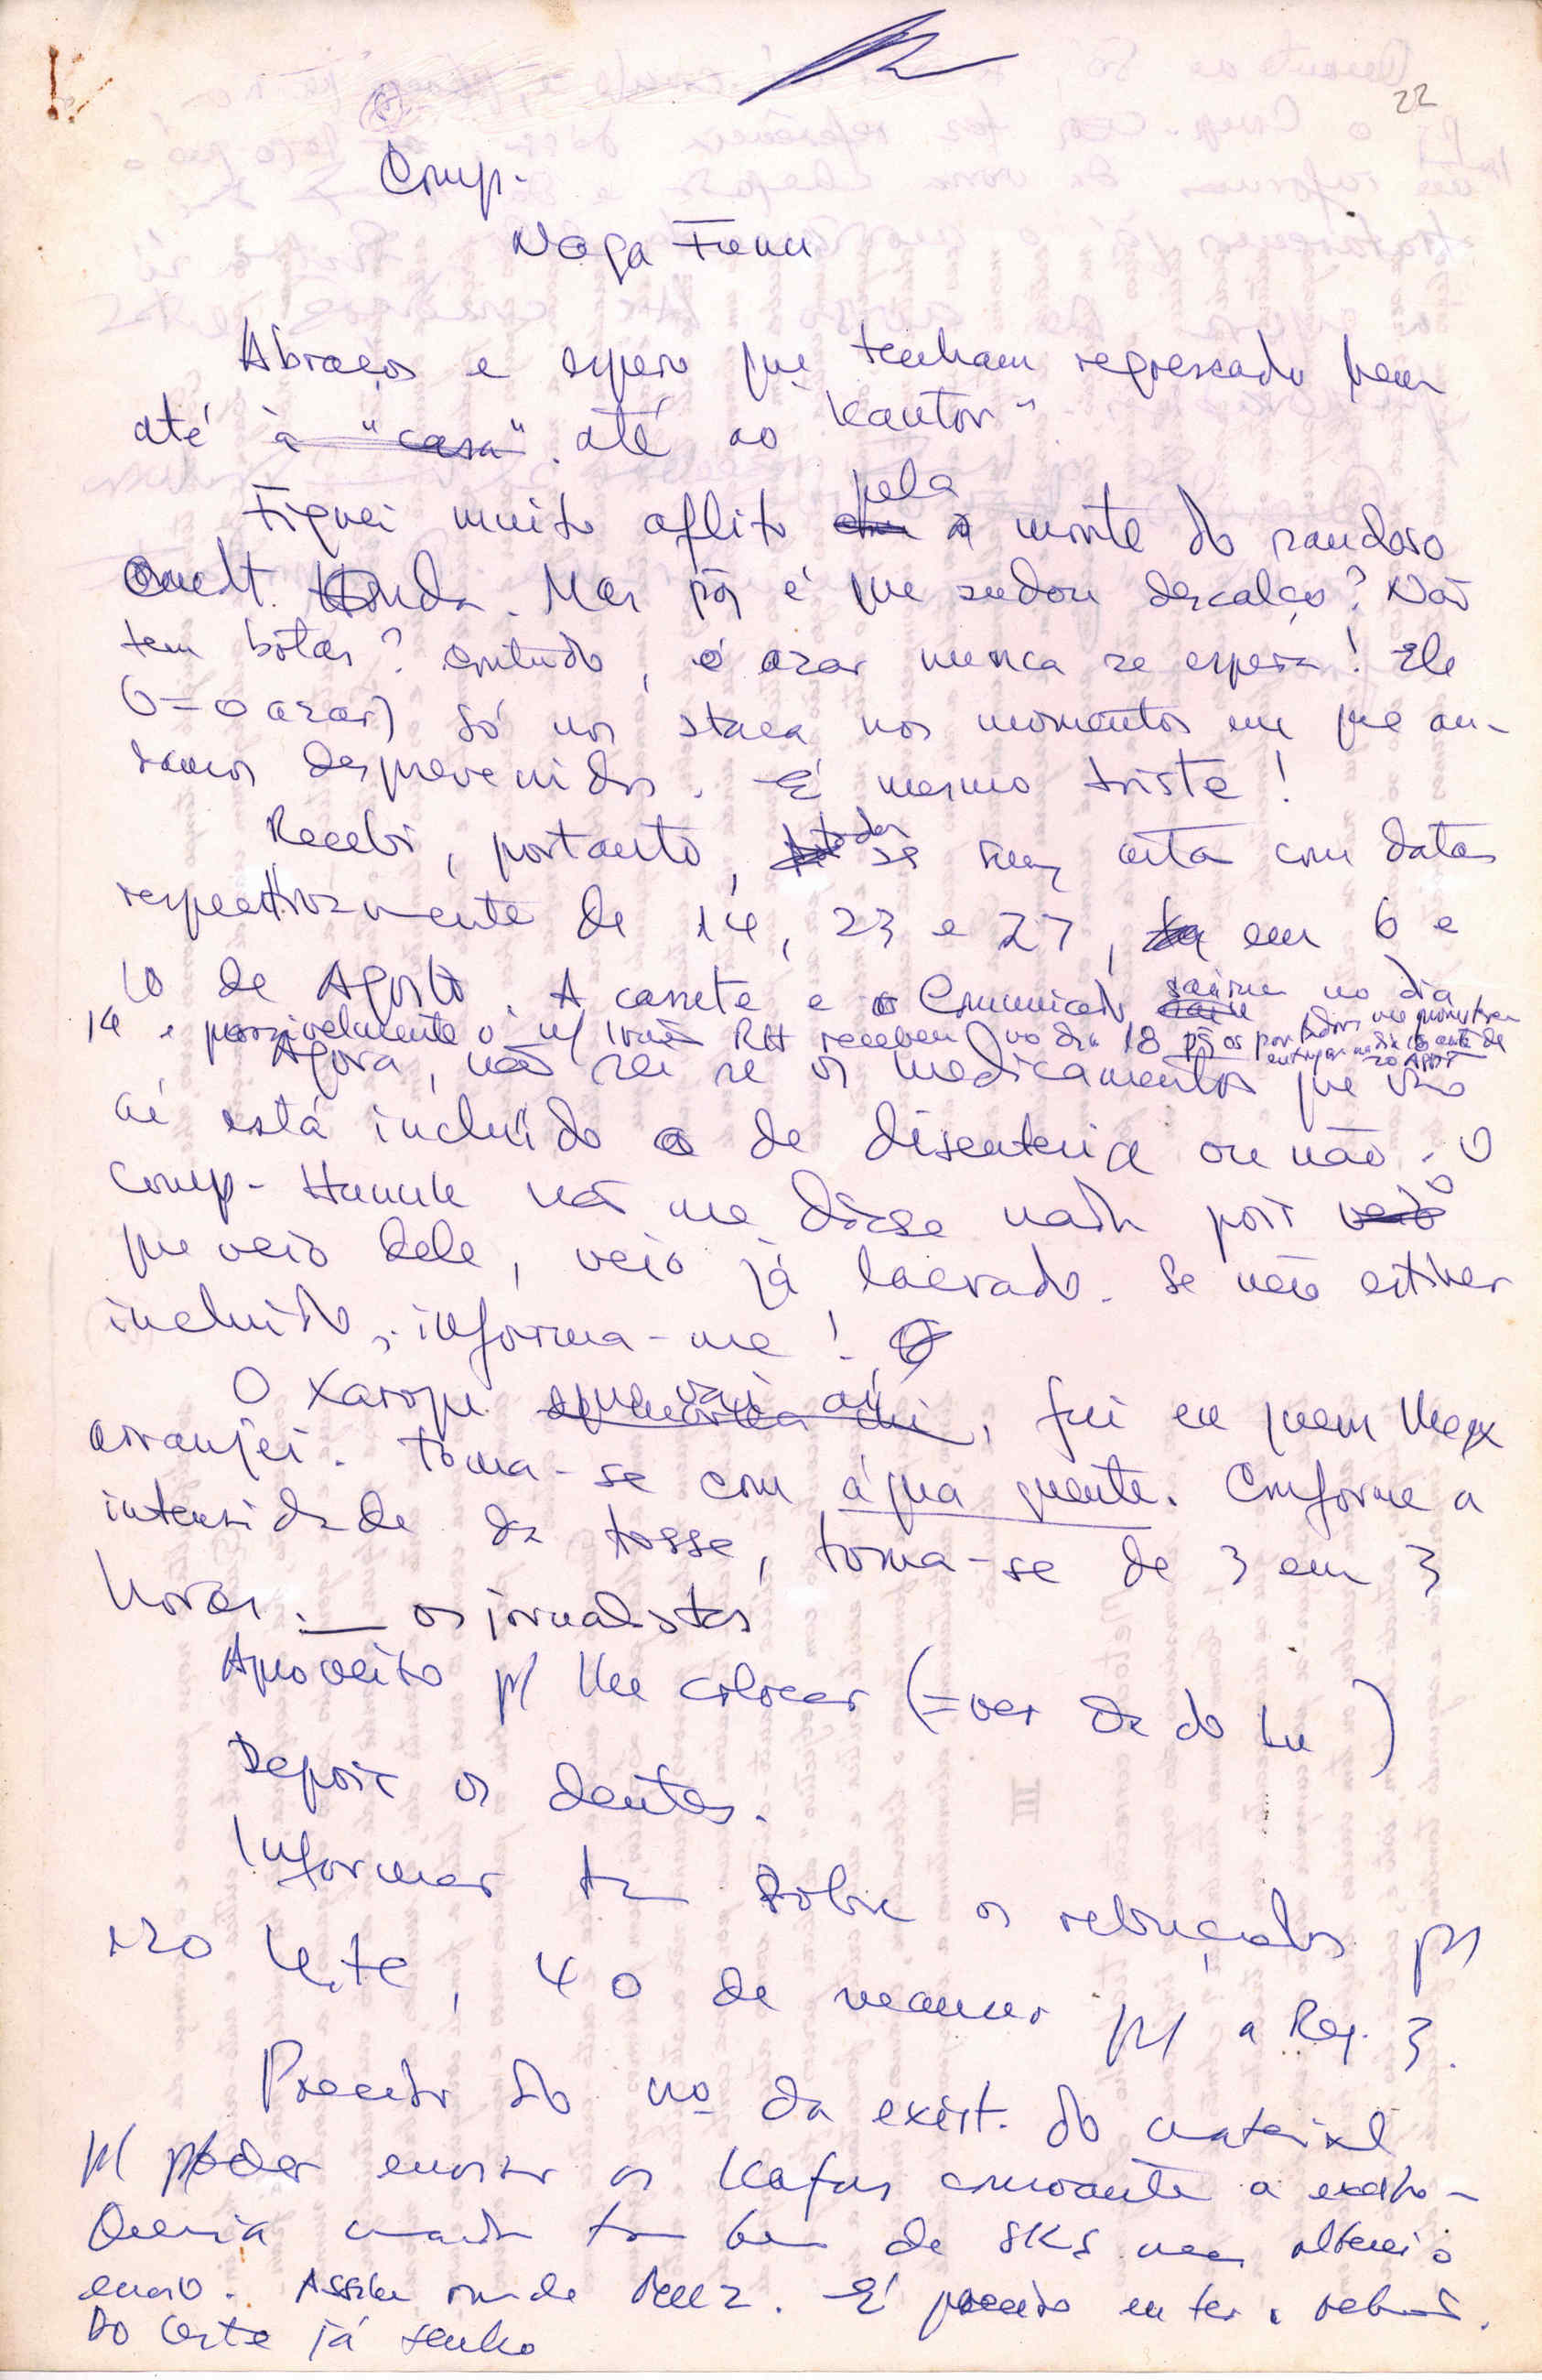 22
Comp.
Naga Fuenu
Abraços e espero que tenham regressado bem
até à "casa". até ao "Kantor".
Fiquei muito aflito pela morte do saudoso
Cmdt. Honda. Mas pq é que andou descalço? Não
tem botas? Contudo, o azar nunca se espera! Ele
(= o azar) só nos ataca nos momentos em que an-
damos desprevenidos. É mesmo triste!
Recebi, portanto, todas as suas cartas com datas
respectivamente de 14, 23 e 27, em 6 e
10 de Agosto. A cassete e o Comunicado saíram no dia
14 e possivelmente o n/ irmão RH recebeu no dia 18 pq os portadores me prometeram
entregar no dia ante de
Agora, não sei se os medicamentos que vão
aí está incluído o de disenteria ou não. O
Comp. não me disse nada pois o
que veio dele, veio já lacrado. Se não estiver
incluído, informa-me!
O xarope que vai aí, fui eu quem lhe
arranjei. Toma-se com água quente. Conforme a
intensidade da tosse, toma-se de 3 em 3
horas. — os jornalistas
Aproveito p/ lhe colocar (= ver da do Lu)
Depois os dentes.
Informar sobre os rebuçados p/
120 Leste, 40 de p/ a Reg. 3.
Preciso do nº da exist. do material
p/ poder enviar os Kafus consoante a
Queria mandar também de SKS mas alterei o
envio. Assim manda. É preciso
Do Leste já tenho